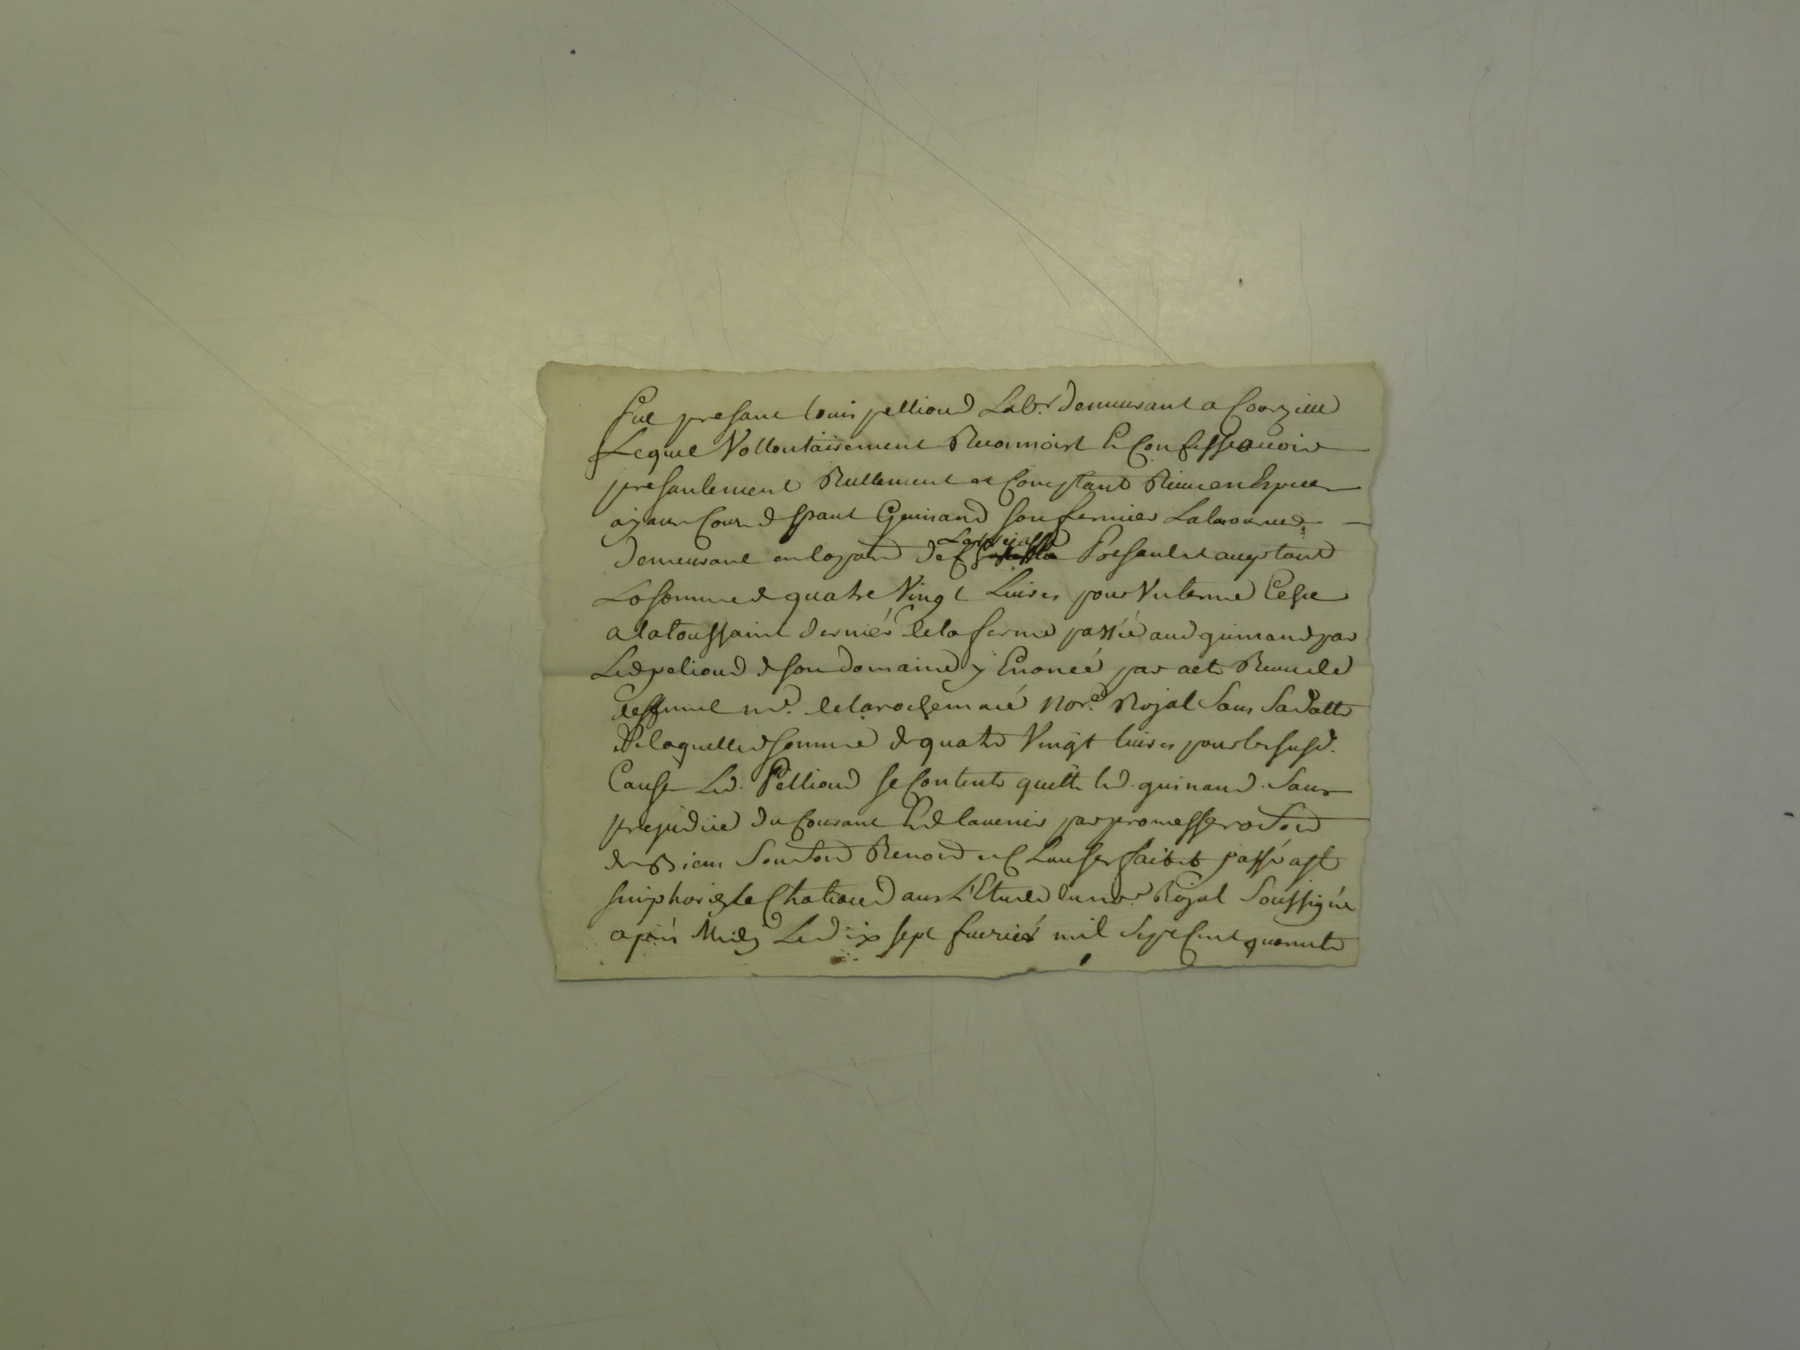 fut presant louis pelliond Lab.r demeurant a Courzieu
Lequel Vollontairement Reconnoist Et Confesse avoir
presantement Reellement et Comptant Receu en Espece
ayant Cour de paul Guinand son fermier Laboureur
demeurant en la par de Larajasse Present et acceptant
La somme de quatre Vingt Livres pour Un terme Escheu
a la toussaint dernier de la ferme passée aud guinand par
Led peliond de son domaine y Enoncé par acte Receu le
deffunct m.e delaroche not.e Royal Sans sa datte
De laquelle somme de quatre Vingt livres pour les susd.
Cause Led. Pelliond se Contente quitte led. guinand. Sans
prejudice du Courant Et de lavenir par promesse
de Biens Renond et Clauses fait et passé a st
simphorien le Chateau aux L'Etude du no.e Royal Soussigné
apres Midy Le dix sept fevrier mil Sept Cent quarente